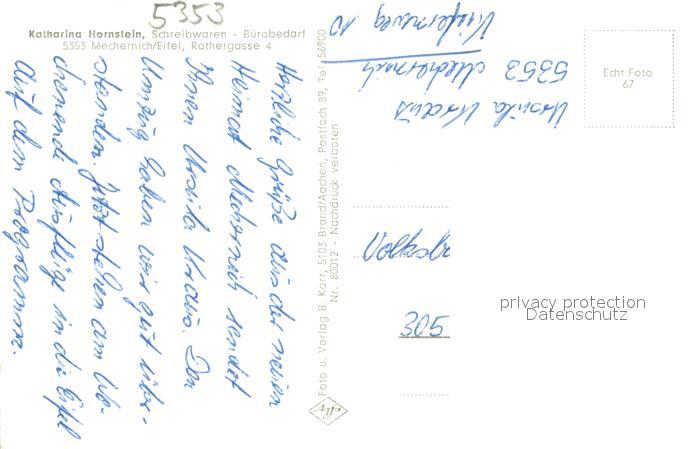 5353
Katharina Hornstein, Schreibwaren - Bürobedarf
5353 Mechernich/Eifel, Rathergasse 4
Herzliche Grüße aus der neuen
Heimat Mechernich sendet
Ihnen Ursula Kraus. Den
Umzug haben wir gut über-
standen. Jetzt stehen am Wo-
chenende Ausflüge in die Eifel
auf dem Programm.
Foto u. Verlag B. Korr, 5103 Brand/Aachen, Postfach 89, Tel. 56900
Nr. 80012 · Nachdruck verboten
Ursula Kraus
5353 Mechernich
10
Echt Foto
67
305
privacy protection
Datenschutz